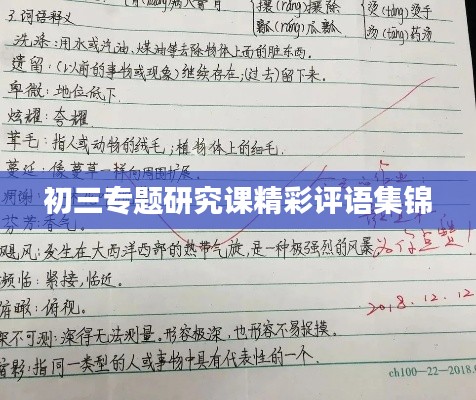 攘(rǎng)攘除 烫(tàng)烫手
3.词语释义 瓤(ráng)瓜瓤
汤(tāng)药汤
洗涤:用水或汽油,煤油等去除物体上面的脏东西。
遗留:(以前的事物或现象)继续存在;(过去)留下来。
卑微:地位低下.
炫耀:夸耀
茸毛:指人或动物的绒毛;植物体上的细毛.
蔓延:像蔓草一样向周围扩展.
初三专题研究课精彩评语集锦
芬芳:香气.
飓风:发生在大西洋西部的热带气旋,是一种极强烈的风暴
为你点赞!
频临:紧接,临近.
俯瞰:俯视.
2018.12.12
深不可测:深得无法测量。形容极深,也形容不易捉摸.
缩影:指同一类型的人或事物中具有代表性的一个.
ch100-22-2018.0